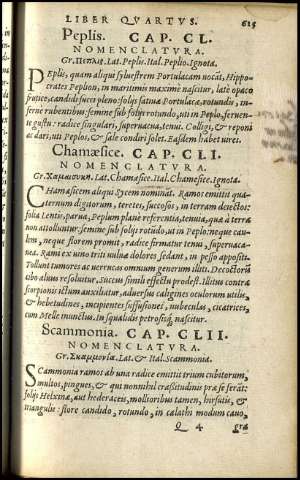 LIBER QVARTVS. 615
Peplis. CAP. CL.
NOMENCLATVRA.
Gr. Πεπλίς. Lat. Peplis. Ital. Peplio. Ignota.
PEplis, quam aliqui syluestrem Portulacam uocāt, Hippo-
crates Peplion, in maritimis maximè nascitur, latè opaco
frutice, candidi succi pleno: folijs satiuæ Portulacæ, rotundis, in-
fernè rubentibus: semine sub folijs rotundo, uti in Peplo, feruen-
te gustu: radice singulari, superuacua, tenui. Colligi, & reponi
ac dari, uti Peplos, & sale condiri solet. Easdem habet uires.
Chamæsice. CAP. CLI.
NOMENCLATVRA.
Gr. Χαμαισύκη. Lat. Chamæsice. Ital. Chamesice. Ignota.
CHamæsicem aliqui Sycem nomināt. Ramos emittit qua-
ternum digitorum, teretes, succosos, in terram deiectos:
folia Lentis, parua, Peplum planè referentia, tenuia, quæ à terra
non attolluntur: semine sub folijs rotūdo, ut in Peplo: neque cau-
lem, neque florem promit, radice firmatur tenui, superuaca-
nea. Rami ex uino triti uuluæ dolores sedant, in pesso appositi.
Tollunt tumores ac uerrucas omnium generum illiti. Decoctoru
cibo aluus resoluitur. Succus simili effectu prodest. Illitus contra
scorpionū ictum auxiliatur, aduersus caligines oculorum utilis,
& hebetudines, incipientes suffusiones, nubeculas, cicatrices,
cum Melle inunctus. In squalidis petrosisq; nascitur.
Scammonia. CAP. CLII.
NOMENCLATVRA.
Gr. Σκαμμονία. Lat. & Ital. Scammonia.
SCammonia ramos ab una radice emittit trium cubitorum,
multos, pingues, & qui nonnihil crassitudinis præ se ferāt:
folijs Helxinæ, aut hederaceis, mollioribus tamen, hirsutis, &
triangulis: flore candido, rotundo, in calathi modum cauo,
Q 4 gra